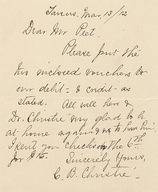 Mar. 13/12
Dear Mr Peet.
Please put the
two inclosed vouchers to
our debit - & credit - as
stated. All well here &
Dr. Christie very glad to be
at home again & us to have him.
I sent you check on the 6th
for $15. Sincerely Yours,
C. B. Christie.